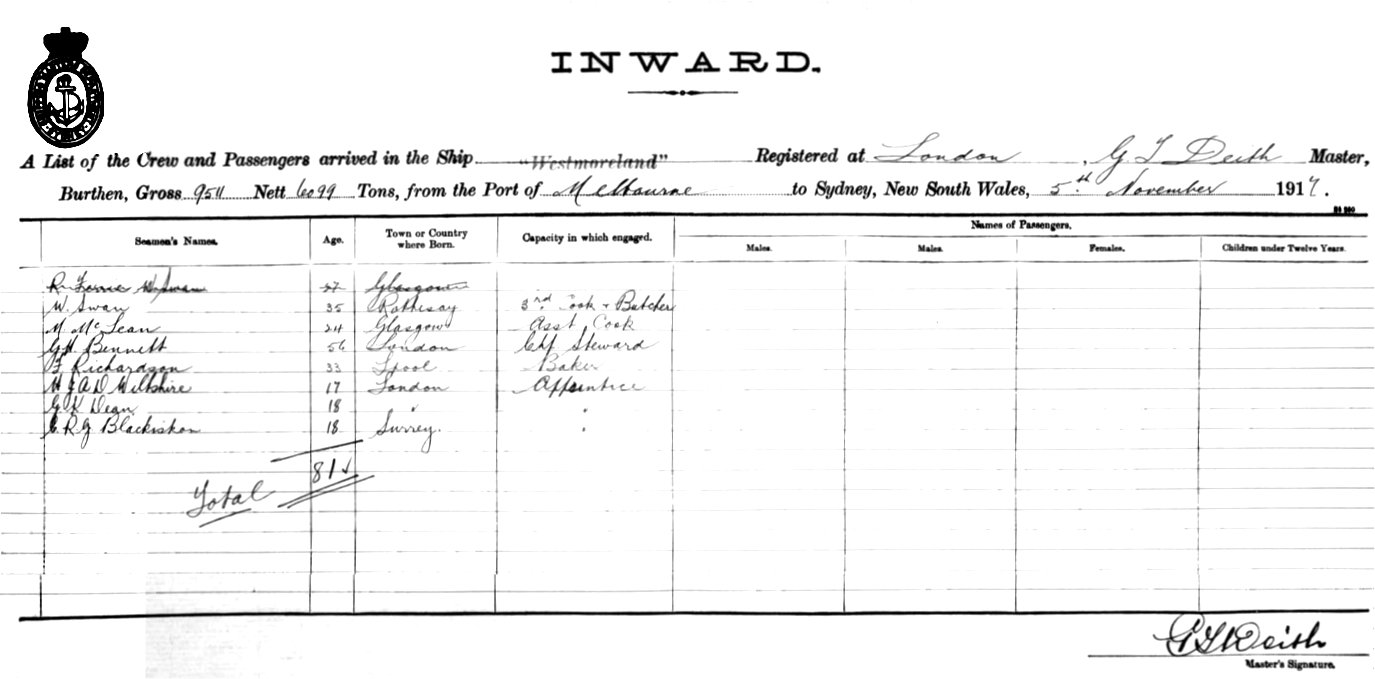 INWARD.
A List of the Crew and Passengers arrived in the Ship "Westmoreland" Registered at London, G T Deith Master,
Burthen, Gross 9511 Nett 6099 Tons, from the Port of Melbourne to Sydney, New South Wales, 5th November 1917.
Seamen's Names. Age. Town or Country where Born. Capacity in which engaged. Names of Passengers.
Males. Males. Females. Children under Twelve Years.
Glasgow
W. Swan 35 Rothesay 3rd Cook + Butcher
M McLean 24 Glasgow Asst Cook
G H Bennett 56 London Chf Steward
F Richardson 33 Lpool Baker
H J A D Wiltshire 17 London Apprentice
G K Dean 18 " "
C R G Blackiston 18 Surrey. "
81 ✓
Total
G T Deith
Master's Signature.